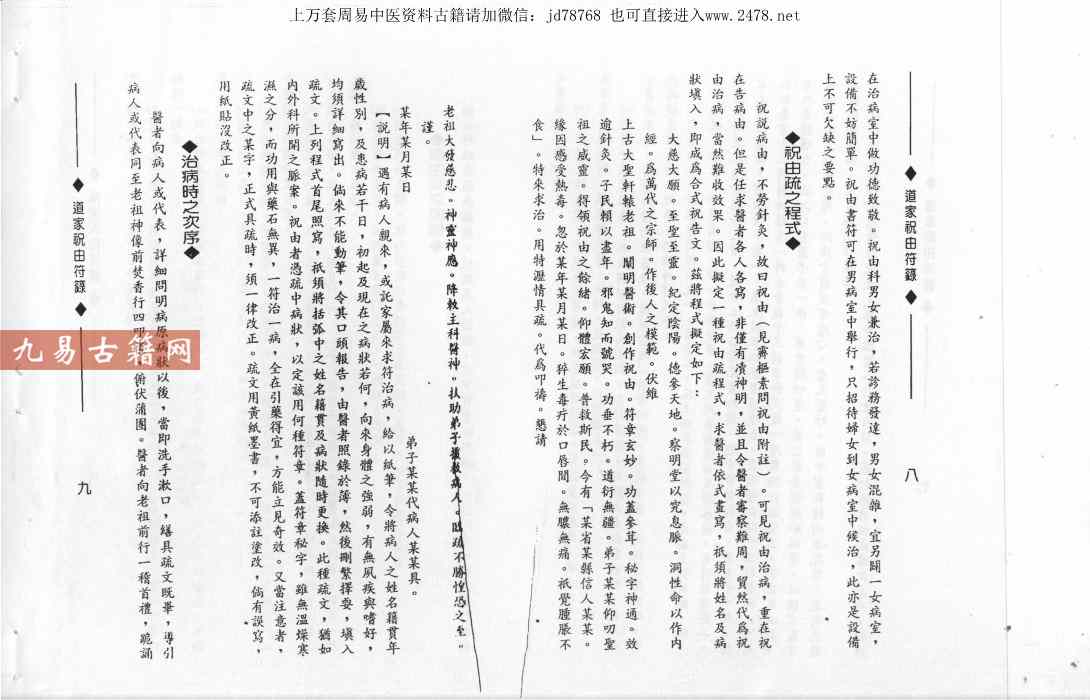 上万套周易中医资料古籍请加微信：jd78768 也可直接进入www.2478.net
◆道家祝由符籙◆
八
在治病室中做功德致敬。祝由科男女兼治，若診務發達，男女混雜，宜另闢一女病室，
設備不妨簡單。祝由書符可在男病室中舉行，只招待婦女到女病室中候治，此亦是設備
上不可欠缺之要點。
◆祝由疏之程式◆
祝說病由，不勞針灸，故曰祝由（見霽樞素問祝由附註）。可見祝由治病，重在祝
在告病由。但是任求醫者各人各寫，非僅有凟神明，並且令醫者審察難周，貿然代為祝
由治病，當然難收效果。因此擬定一種祝由疏程式，求醫者依式畫寫，祇須將姓名及病
狀填入，即成為合式祝告文。茲將程式擬定如下：
大慈大願。至聖至靈。紀定陰陽。德參天地。察明堂以究息脈。洞性命以作內
經。為萬代之宗師。作後人之模範。伏維
上古大聖軒轅老祖。闡明醫術。創作祝由。符章玄妙。功蓋參茸。秘字神通。效
逾針灸。子民賴以盡年。邪鬼知而號哭。功垂不朽。道衍無疆。弟子某某仰叨聖
祖之威靈。得領祝由之餘緒。仰體宏願。普救斯民。今有「某省某縣信人某某。
緣因感受熱毒。忽於某年某月某日。猝生毒疔於口唇間。無膿無痛。祇覺腫脹不
食」。特來求治。用特瀝情具疏。代為叩禱。懇請
老祖大發慈悲。神靈神應。降敕主科醫神。扶助弟子援救病人。臨疏不勝惶恐之至。
謹。
弟子某某代病人某某具。
某年某月某日
【說明】遇有病人親來，或託家屬來求符治病，給以紙筆，令將病人之姓名籍貫年
歲性別，及患病若干日，初起及現在之病狀若何，向來身體之強弱，有無夙疾與嗜好，
均須詳細寫出。倘來不能動筆，令其口頭報告，由醫者照錄於簿，然後刪繁擇要，填入
疏文。上列程式首尾照寫，祇須將括弧中之姓名籍貫及病狀隨時更換。此種疏文，猶如
內外科所開之脈案。祝由者憑疏中病狀，以定該用何種符章。蓋符章秘字，雖無溫燥寒
濕之分，而功用與藥石無異，一符治一病，全在引藥得宜，方能立見奇效。又當注意者，
疏文中之某字，正式具疏時，須一律改正。疏文用黃紙墨書，不可添註塗改，倘有誤寫，
用紙貼沒改正。
◆治病時之次序◆
醫者向病人或代表，詳細問明病原病狀以後，當即洗手漱口，繕具疏文既畢，導引
病人或代表同至老祖神像前焚香行四叩首俯伏蒲團。醫者向老祖前行一稽首禮，跪誦
◆道家祝由符籙◆
九
九易古籍网